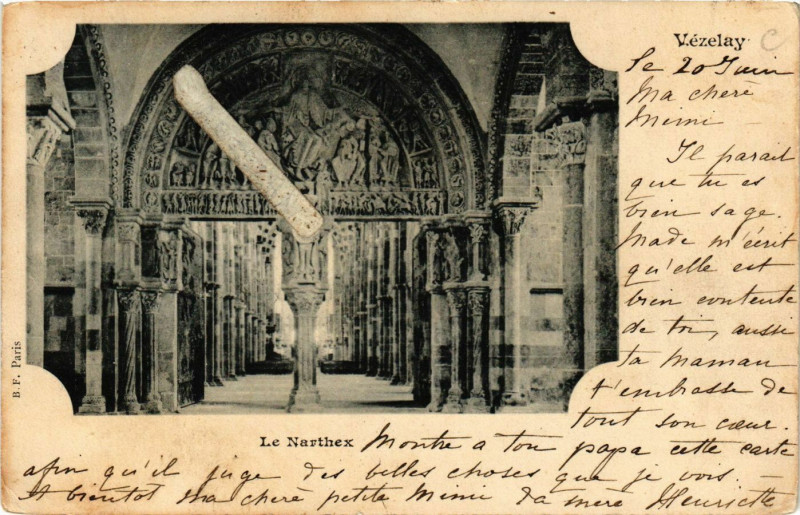 Vézelay
C
Le 20 Juin
Ma chère
Mimi —
Il parait
que tu es
bien sage.
Made m'écrit
qu'elle est
bien contente
de toi, aussi
ta Maman
t'embrasse de
tout son cœur.
B. F. Paris
Le Narthex
Montre a ton papa cette carte
afin qu'il juge des belles choses que je vois. —
A bientot ma chère petite Mimi Ta mère Henriette